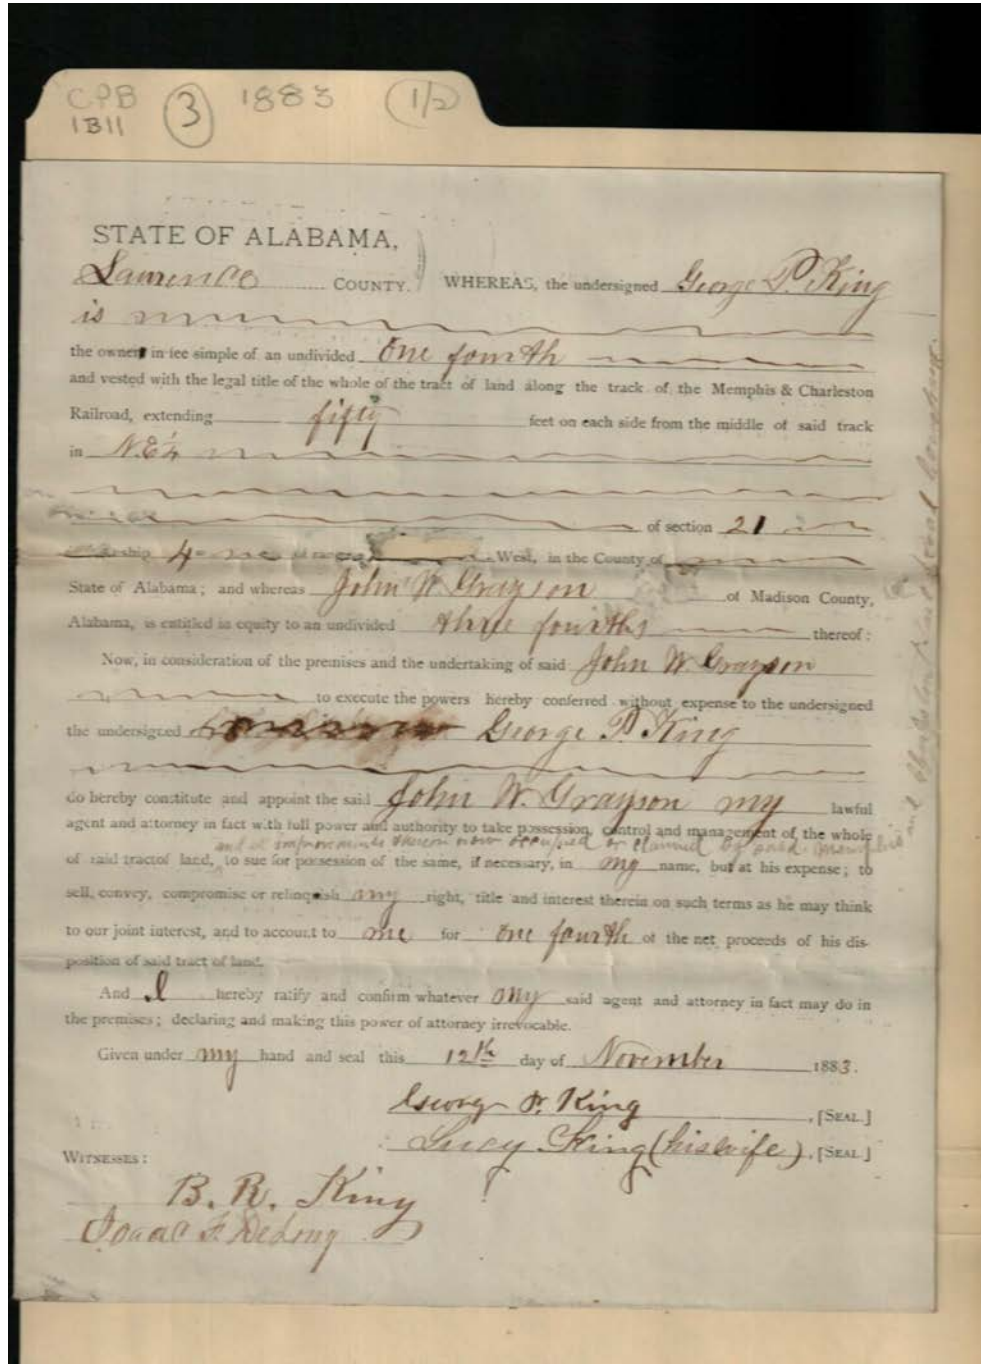 CPB 3 1883 (1/2)
1B11
STATE OF ALABAMA,
Lawrence COUNTY. WHEREAS, the undersigned George P. King
is
the owner in fee simple of an undivided One fourth
and vested with the legal title of the whole of the tract of land along the track of the Memphis & Charleston
Railroad, extending fifty feet on each side from the middle of said track
in N.E 1/4
of section 21
4 West, in the County of
State of Alabama; and whereas John W. Grayson of Madison County,
Alabama, is entitled in equity to an undivided three fourths thereof:
Now, in consideration of the premises and the undertaking of said John W. Grayson
to execute the powers hereby conferred without expense to the undersigned
the undersigned George P. King
do hereby constitute and appoint the said John W. Grayson my lawful
agent and attorney in fact with full power and authority to take possession, control and management of the whole
and improvements therein now occupied or claimed by said Memphis
of said tract of land, to sue for possession of the same, if necessary, in my name, but at his expense; to
sell, convey, compromise or relinquish any right, title and interest therein on such terms as he may think
to our joint interest, and to account to me for one fourth of the net proceeds of his dis-
position of said tract of land.
And I hereby ratify and confirm whatever my said agent and attorney in fact may do in
the premises; declaring and making this power of attorney irrevocable.
Given under my hand and seal this 12th day of November 1883.
George P. King, [SEAL]
Lucy King (his wife), [SEAL]
WITNESSES:
B. R. King
Isaac F. DeLong
and Charleston Railroad Company.